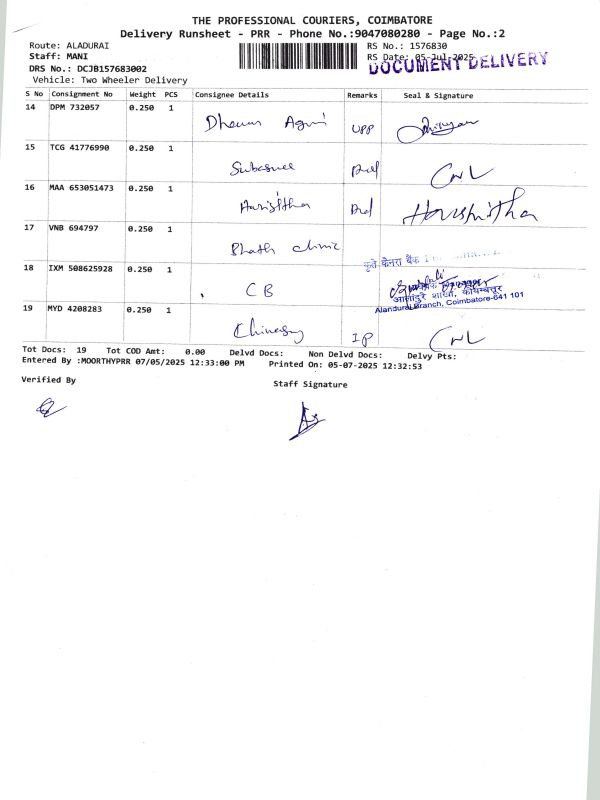 THE PROFESSIONAL COURIERS, COIMBATORE
Delivery Runsheet - PRR - Phone No.:9047080280 - Page No.:2
Route: ALADURAI RS No.: 1576830
Staff: MANI RS Date: 05-Jul-2025
DOCUMENT DELIVERY
DRS No.: DCJB157683002
Vehicle: Two Wheeler Delivery
S No Consignment No Weight PCS Consignee Details Remarks Seal & Signature
14 DPM 732057 0.250 1
15 TCG 41776990 0.250 1
16 MAA 653051473 0.250 1 Harishitha
17 VNB 694797 0.250 1 clinic
कृते केनरा बैंक
18 IXM 508625928 0.250 1 CB
आलांदुरै शाखा, कोयम्बत्तूर
Alandurai Branch, Coimbatore-641 101
19 MYD 4208283 0.250 1
Tot Docs: 19 Tot COD Amt: 0.00 Delvd Docs: Non Delvd Docs: Delvy Pts:
Entered By :MOORTHYPRR 07/05/2025 12:33:00 PM Printed On: 05-07-2025 12:32:53
Verified By Staff Signature